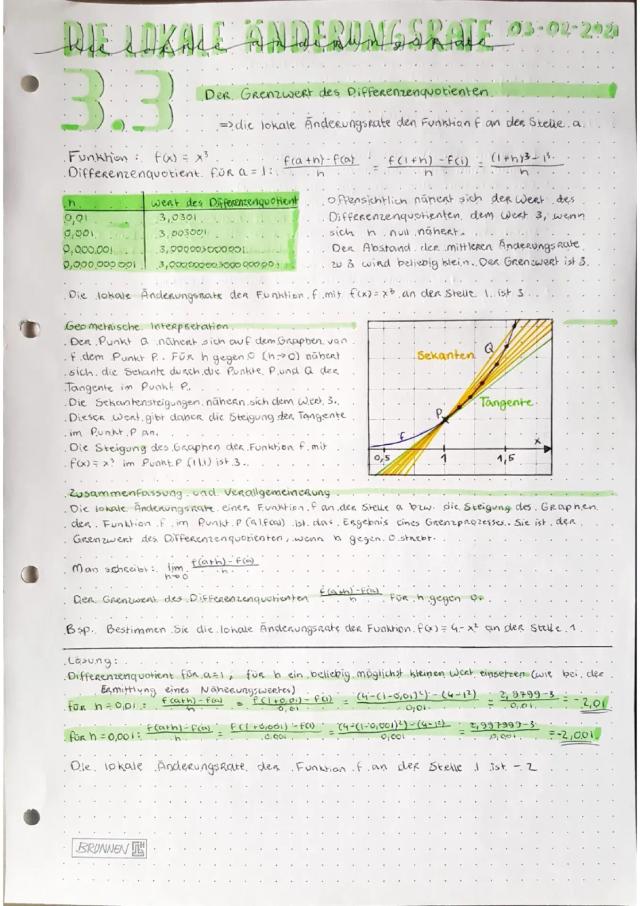 DIE LOKALE ÄNDERUNGSRATE 03-02-2021
die lokale änderungsrate
3.3
Der Grenzwert des Differenzenquotienten
=> die lokale Änderungsrate der Funktion f an der Stelle a
Funktion: f(x) = x³
Differenzenquotient für a = 1: f(a+h)-f(a)/h = f(1+h)-f(1)/h = (1+h)³-1³/h
h Wert des Differenzenquotient
0,01 3,0301
0,001 3,003001
0,000.001 3,000003000001
0,000.000.001 3,000000003000000001
Offensichtlich nähert sich der Wert des
Differenzenquotienten dem Wert 3, wenn
sich h null nähert.
Der Abstand der mittleren Änderungsrate
zu 3 wird beliebig klein. Der Grenzwert ist 3.
Die lokale Änderungsrate der Funktion f mit f(x) = x³ an der Stelle 1 ist 3.
Geometrische Interpretation
Der Punkt Q nähert sich auf dem Graphen von
f dem Punkt P. Für h gegen 0 (h→0) nähert
sich die Sekante durch die Punkte P und Q der
Tangente im Punkt P.
Die Sekantensteigungen nähern sich dem Wert 3.
Dieser Wert gibt daher die Steigung der Tangente
im Punkt P an.
Die Steigung des Graphen der Funktion f mit
f(x) = x³ im Punkt P (1|1) ist 3.
Sekanten Q
Tangente
P
f
x
0,5 1 1,5
Zusammenfassung und Verallgemeinerung
Die lokale Änderungsrate einer Funktion f an der Stelle a bzw. die Steigung des Graphen
der Funktion f im Punkt P (a|f(a)) ist das Ergebnis eines Grenzprozesses. Sie ist der
Grenzwert des Differenzenquotienten, wenn h gegen 0 strebt.
Man schreibt: lim h→0 f(a+h)-f(a)/h
Der Grenzwert des Differenzenquotienten f(a+h)-f(a)/h für h gegen 0.
Bsp. Bestimmen Sie die lokale Änderungsrate der Funktion f(x) = 4-x² an der Stelle 1
Lösung:
Differenzenquotient für a=1, für h ein beliebig möglichst kleinen Wert einsetzen (wie bei der
Ermittlung eines Näherungswertes)
für h = 0,01: f(a+h)-f(a)/h = f(1+0,01)-f(1)/0,01 = (4-(1-0,01)²)-(4-1²)/0,01 = 2,9799-3/0,01 = -2,01
für h = 0,001: f(a+h)-f(a)/h = f(1+0,001)-f(1)/0,001 = (4-(1-0,001)²)-(4-1²)/0,001 = 2,997999-3/0,001 = -2,001
Die lokale Änderungsrate der Funktion f an der Stelle 1 ist -2
BRUNNEN